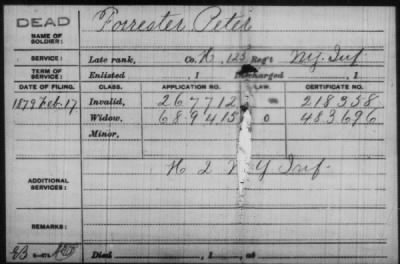 DEAD
NAME OF SOLDIER: Forrester Peter
SERVICE: Late rank, Co. H, 123 Reg't N.Y. Inf
TERM OF SERVICE: Enlisted , 1 Discharged , 1
DATE OF FILING. CLASS. APPLICATION NO. LAW. CERTIFICATE NO.
1879 Feb. 17 Invalid, 267712 218358
Widow, 689415 483696
Minor,
ADDITIONAL SERVICES: H 2 N Y Inf.
REMARKS:
Died , 1 , at